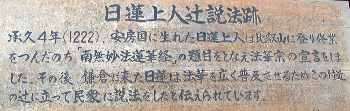 日蓮上人辻説法跡
承久4年(1222)、安房国に生れた日蓮上人は比叡山に登り修業
をつんだのち「南無妙法蓮華経」の題目をとなえ法華宗の宣言をしま
した。その後、鎌倉に来た日蓮は法華を立く普及させるためこの付近
の辻に立って民衆に説法をしたと伝えられています。